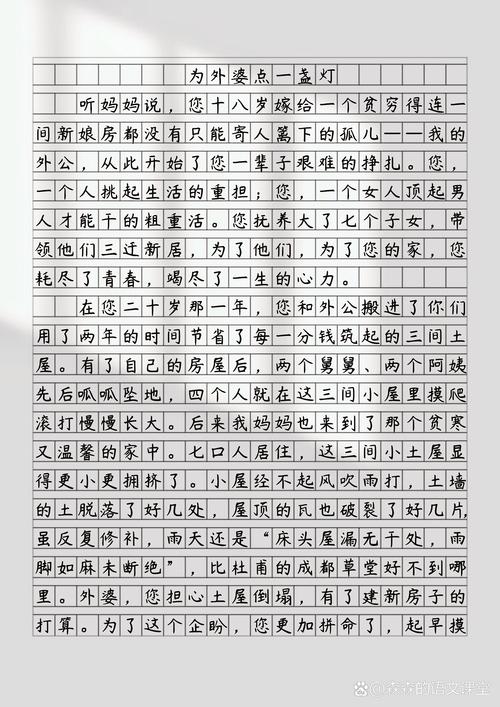 为外婆点一盏灯
听妈妈说，您十八岁嫁给一个贫穷得连一
间新娘房都没有只能寄人篱下的孤儿——我的
外公，从此开始了您一辈子艰难的挣扎。您，
一个人挑起生活的重担；您，一个女人顶起男
人才能干的粗重活。您抚养大了七个子女，带
领他们三迁新居，为了他们，为了您的家，您
耗尽了青春，竭尽了一生的心力。
在您二十岁那一年，您和外公搬进了你们
用了两年的时间节省了每一分钱筑起的三间土
屋。有了自己的房屋后，两个舅舅、两个阿姨
先后呱呱坠地，四个人就在这三间小屋里摸爬
滚打慢慢长大。后来我妈妈也来到了那个贫寒
又温馨的家中。七口人居住，这三间小土屋显
得更小更拥挤了。小屋经不起风吹雨打，土墙
的土脱落了好几处，屋顶的瓦也破裂了好几片，
虽反复修补，雨天还是“床头屋漏无干处，雨
脚如麻未断绝”，比杜甫的成都草堂好不到哪
里。外婆，您担心土屋倒塌，有了建新房子的
打算。为了这个企盼，您更加拼命了，起早摸
@森森的语文课堂